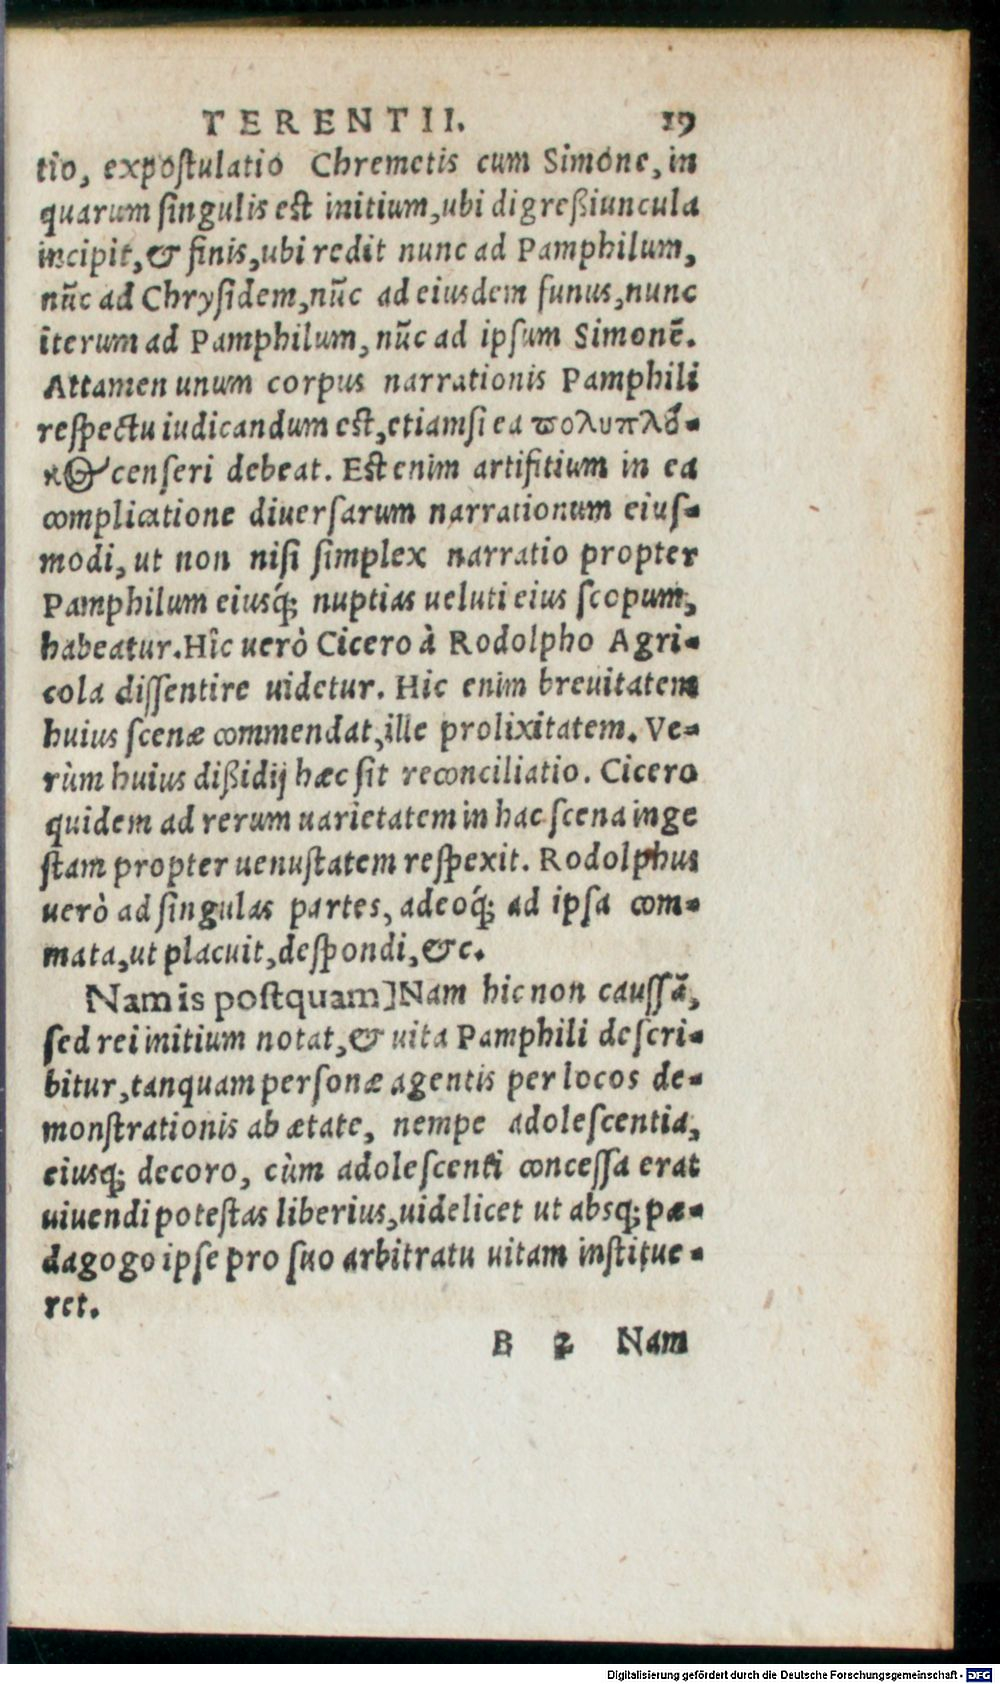 TERENTII. 19
tio, expoſtulatio Chremetis cum Simone, in
quarum ſingulis eſt initium, ubi digreßiuncula
incipit, & finis, ubi redit nunc ad Pamphilum,
nūc ad Chryſidem, nūc ad eiusdem funus, nunc
iterum ad Pamphilum, nūc ad ipſum Simonē.
Attamen unum corpus narrationis Pamphili
reſpectu iudicandum eſt, etiamſi ea ϖολυπλό-
κ\& cenſeri debeat. Eſt enim artifitium in ea
complicatione diuerſarum narrationum eiuſ-
modi, ut non niſi ſimplex narratio propter
Pamphilum eiusq́; nuptias ueluti eius ſcopum,
habeatur. Hîc uerò Cicero à Rodolpho Agri-
cola diſſentire uidetur. Hic enim breuitatem
huius ſcenæ commendat, ille prolixitatem. Ve-
rùm huius dißidij hæc ſit reconciliatio. Cicero
quidem ad rerum uarietatem in hac ſcena inge
ſtam propter uenuſtatem reſpexit. Rodolphus
uerò ad ſingulas partes, adeoq́; ad ipſa com-
mata, ut placuit, deſpondi, &c.
Nam is poſtquam] Nam hic non cauſſā,
ſed rei initium notat, & uita Pamphili deſcri-
bitur, tanquam perſonæ agentis per locos de-
monſtrationis ab ætate, nempe adoleſcentia,
eiusq́; decoro, cùm adoleſcenti conceſſa erat
uiuendi poteſtas liberius, uidelicet ut absq; pæ-
dagogo ipſe pro ſuo arbitratu uitam inſtitue-
ret.
B 2 Nam
Digitalisierung gefördert durch die Deutsche Forschungsgemeinschaft - DFG